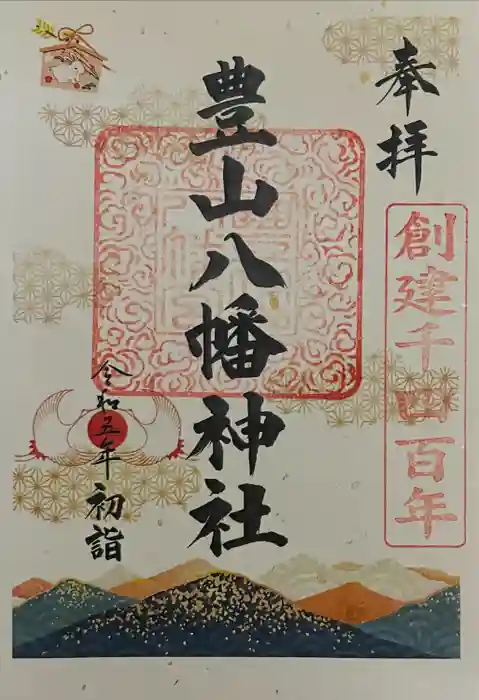 奉拝
創建千四百年
豊山八幡神社
令和五年
初詣